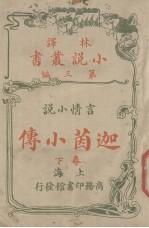 林譯
小說叢書
第三編
言情小說
迦茵小傳
卷下
上海
商務印書館發行